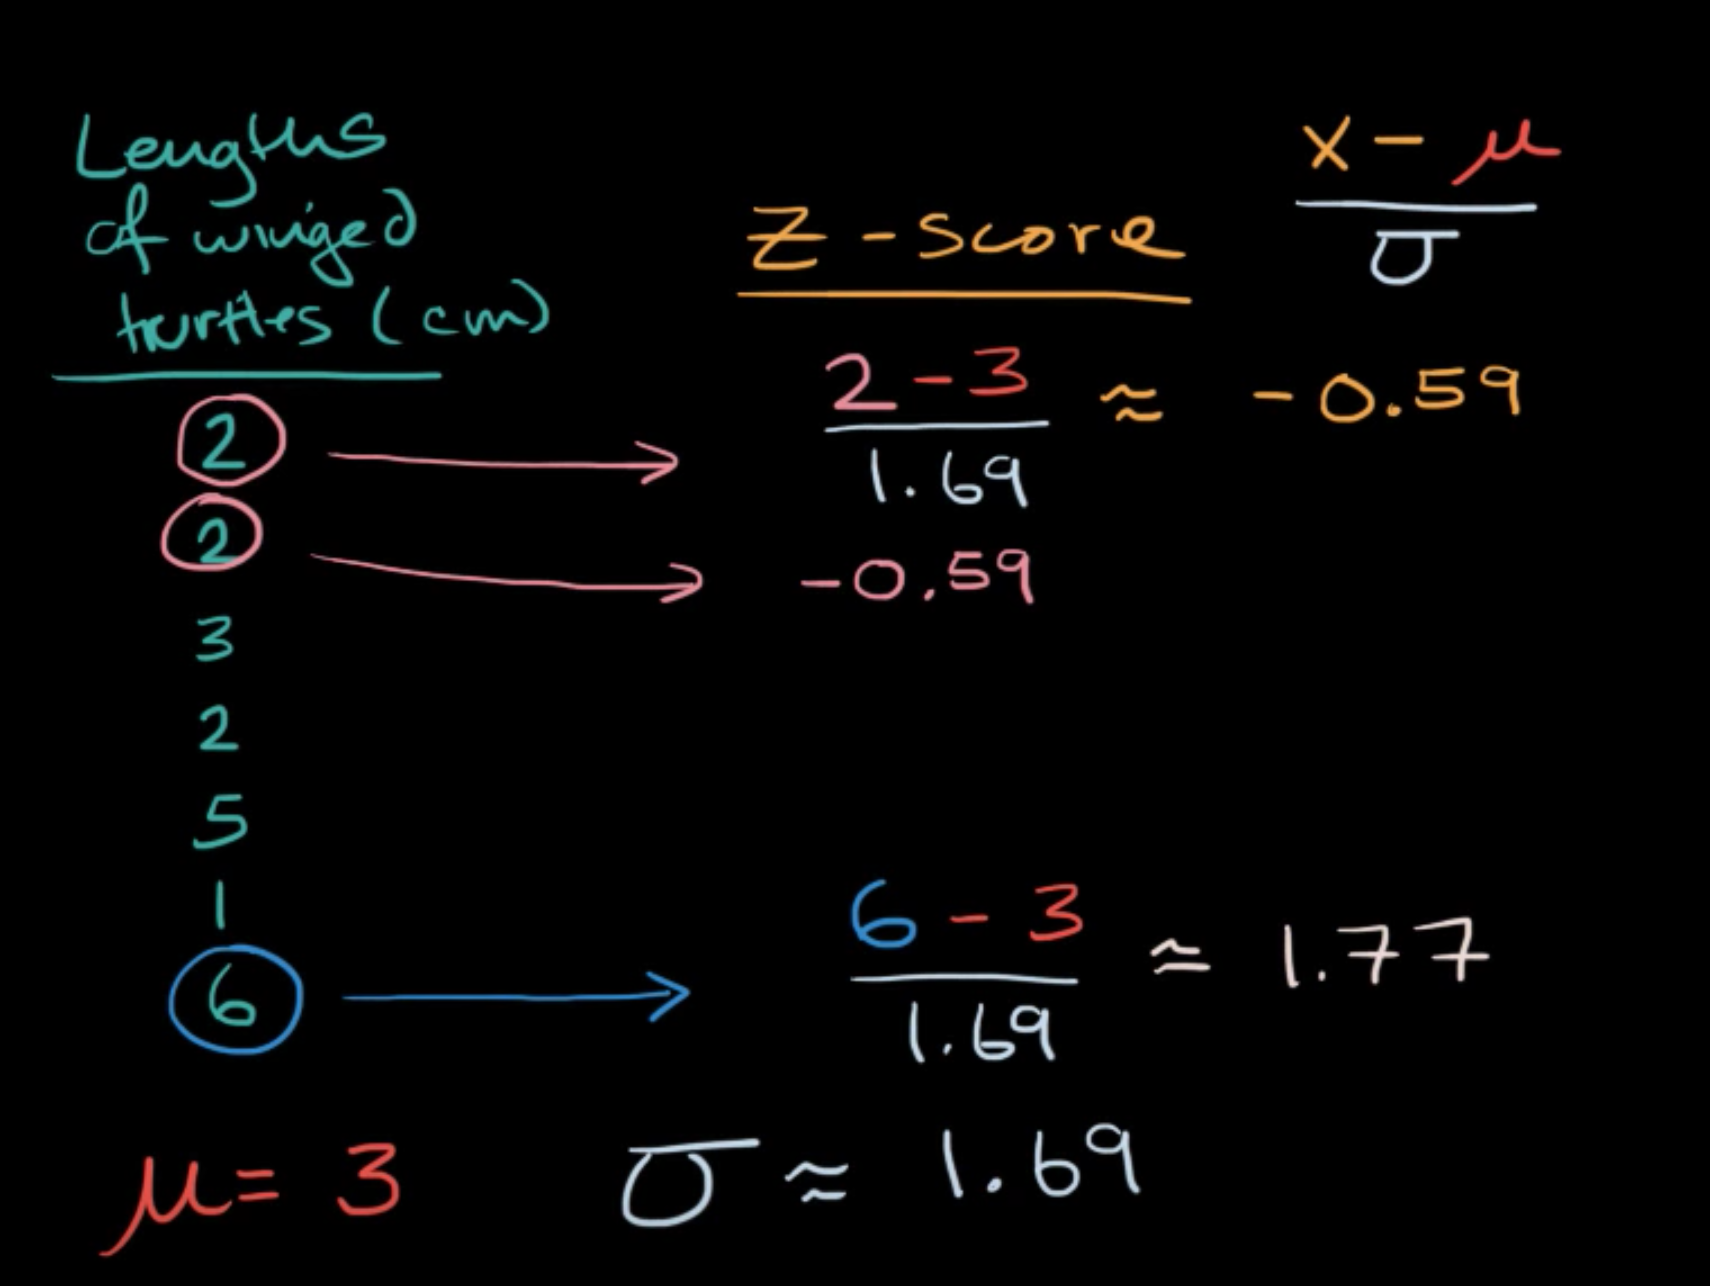 Lengths
of winged
turtles (cm)
z-score
x - μ
σ
2
2 - 3
1.69
≈ -0.59
2
-0.59
3
2
5
1
6
6 - 3
1.69
≈ 1.77
μ = 3
σ ≈ 1.69